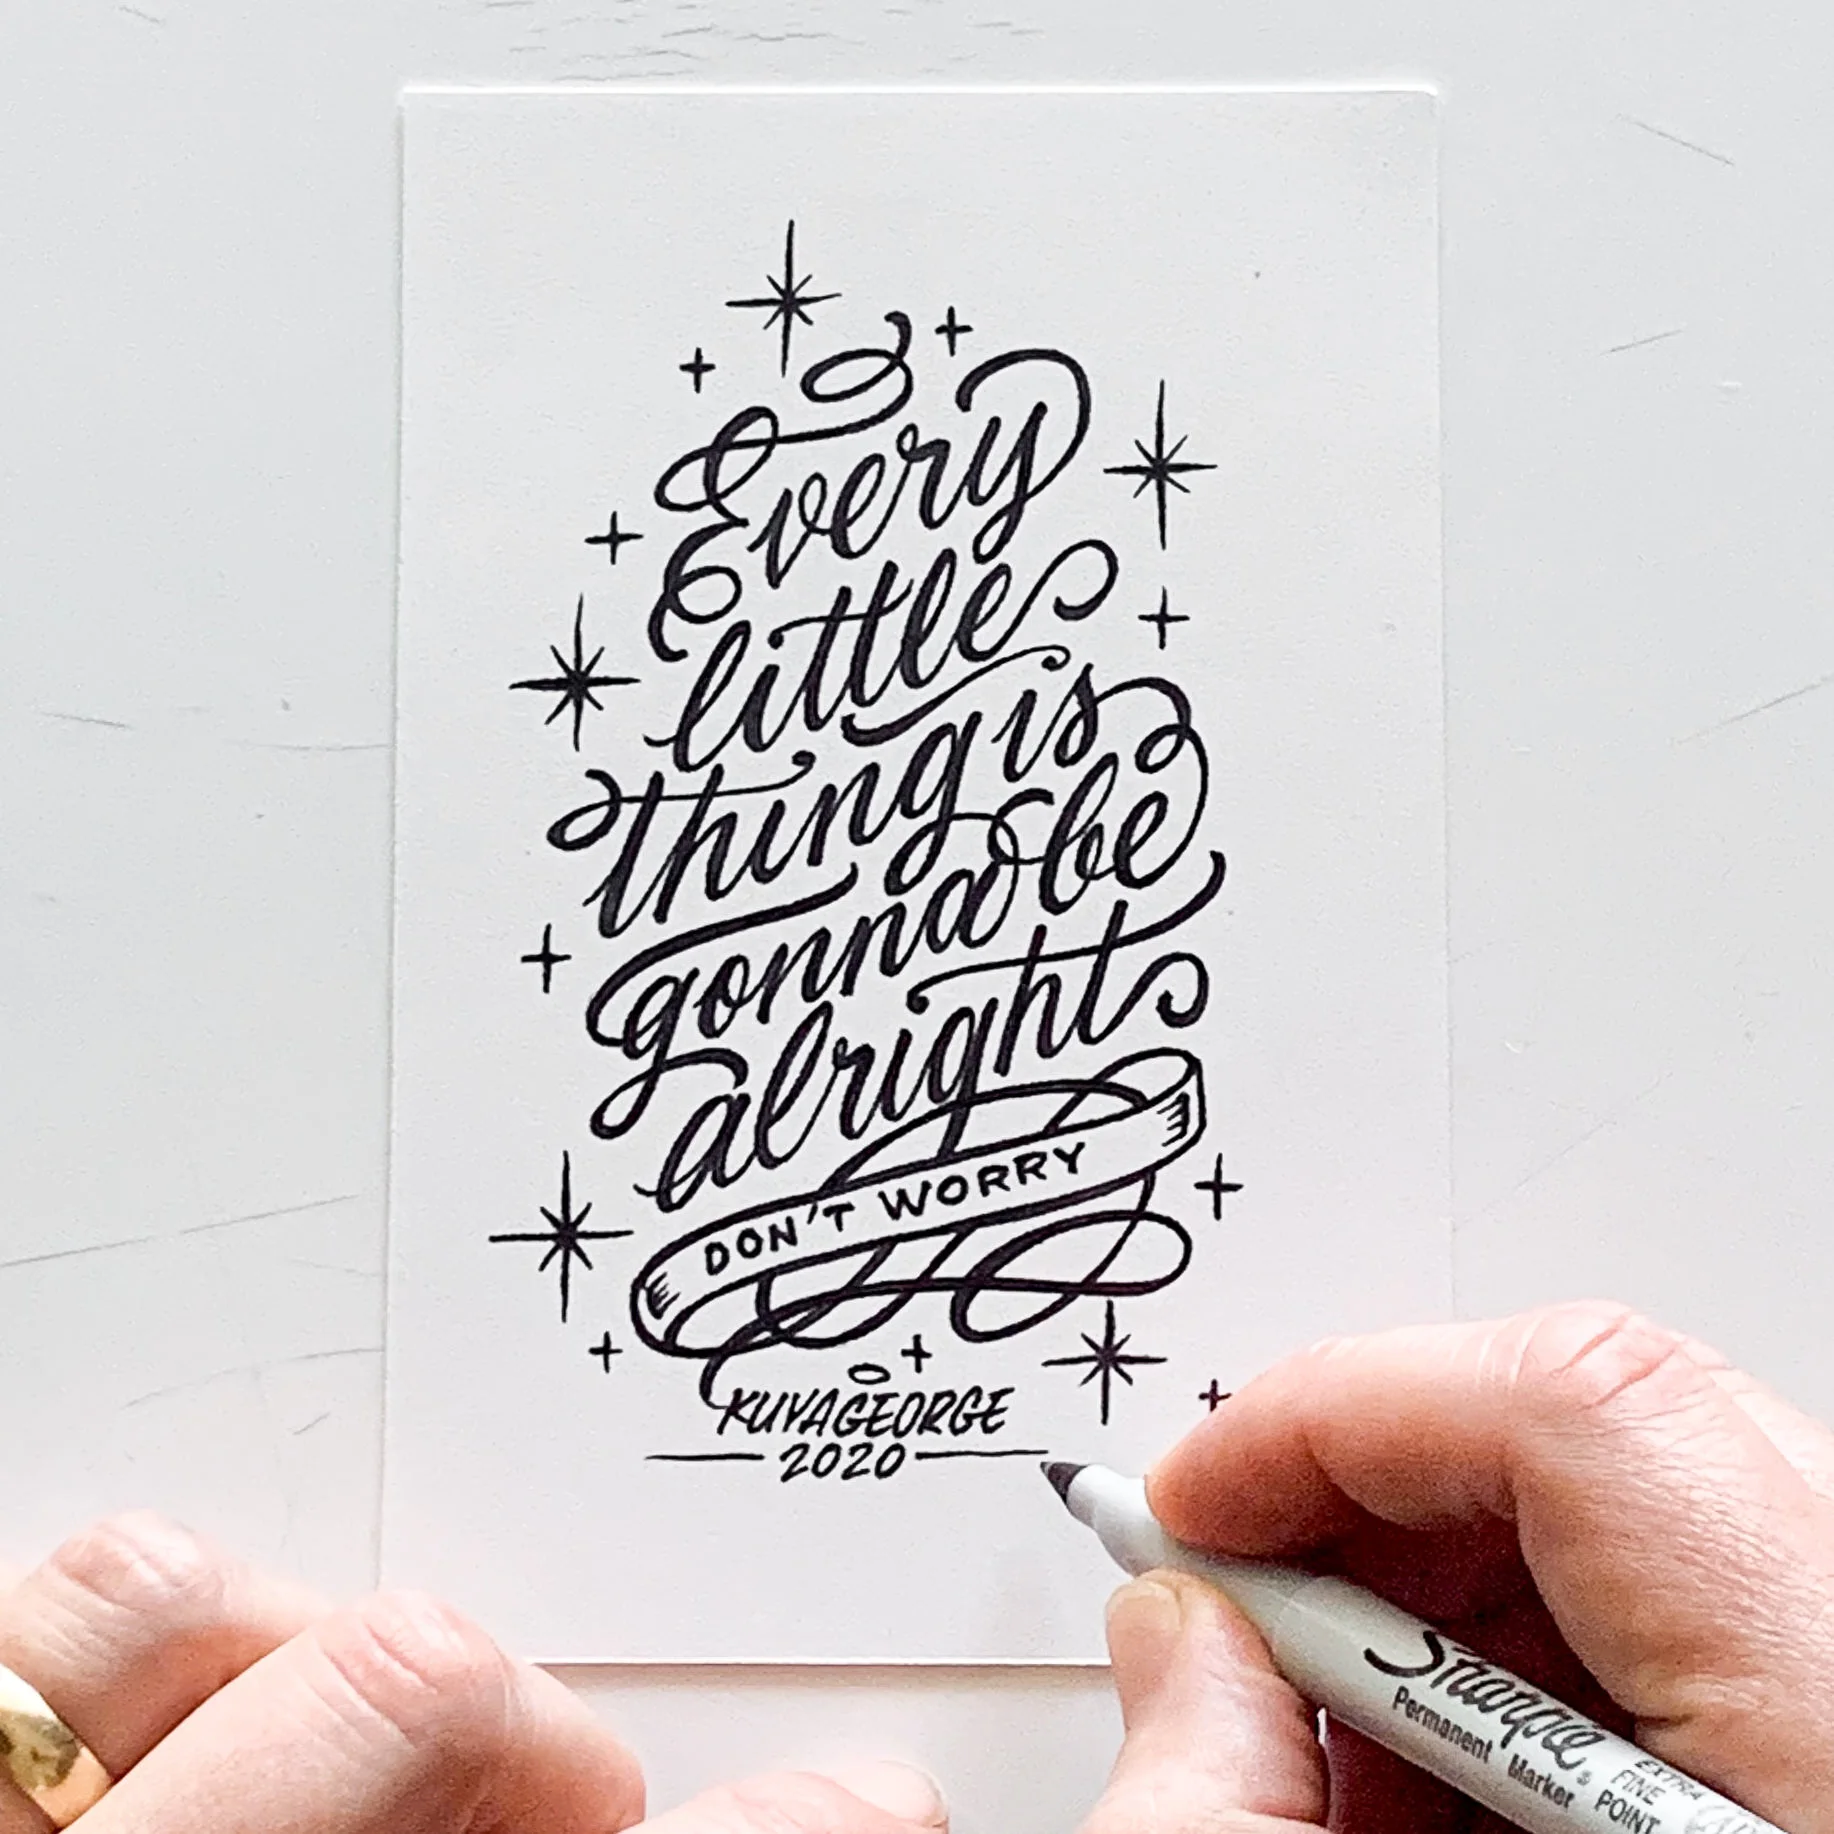 Every
little
thing is
gonna be
alright
DON'T WORRY
KUYAGEORGE
2020
Sharpie
Permanent Marker
EXTRA
FINE
POINT